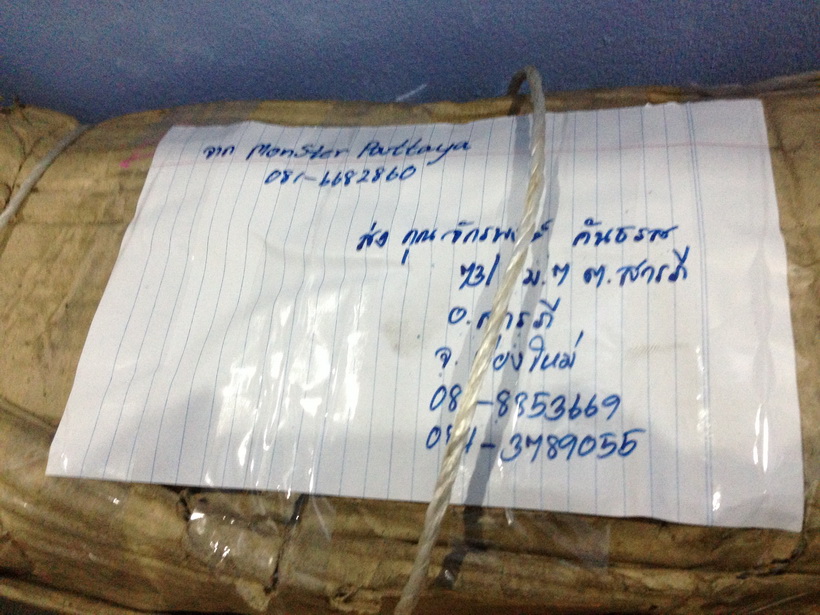 จาก Monster Pattaya
081-6682860
ส่ง คุณ คันธรส
73/ ม.7 ต.สารภี
อ.สารภี
จ. ใหม่
08 -8853669
-3789055